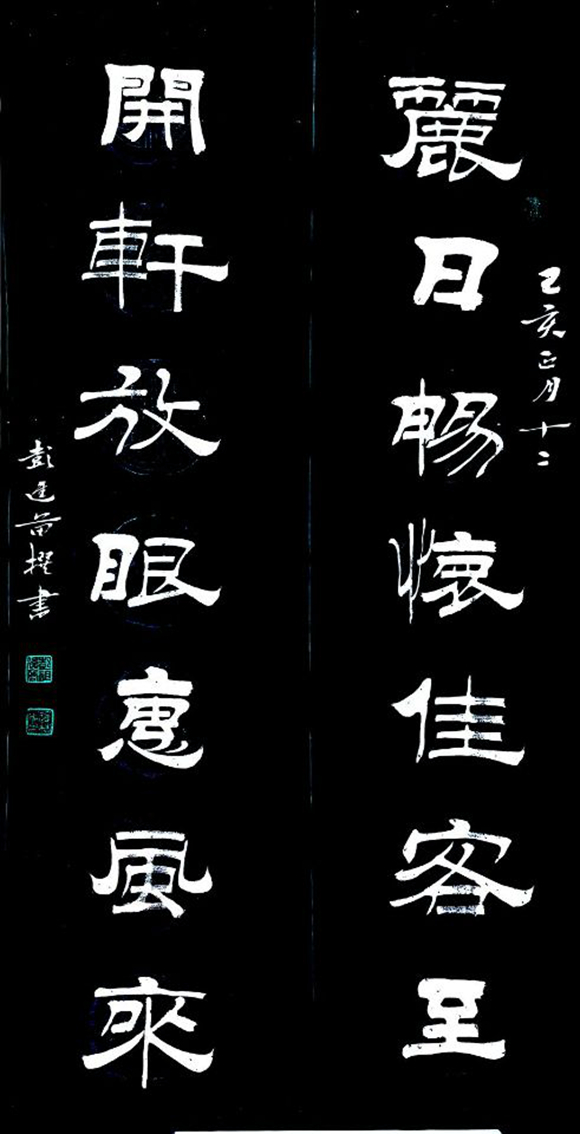 麗日暢懷佳客至
己亥正月十二
開軒放眼惠風來
彭進㽕撰書